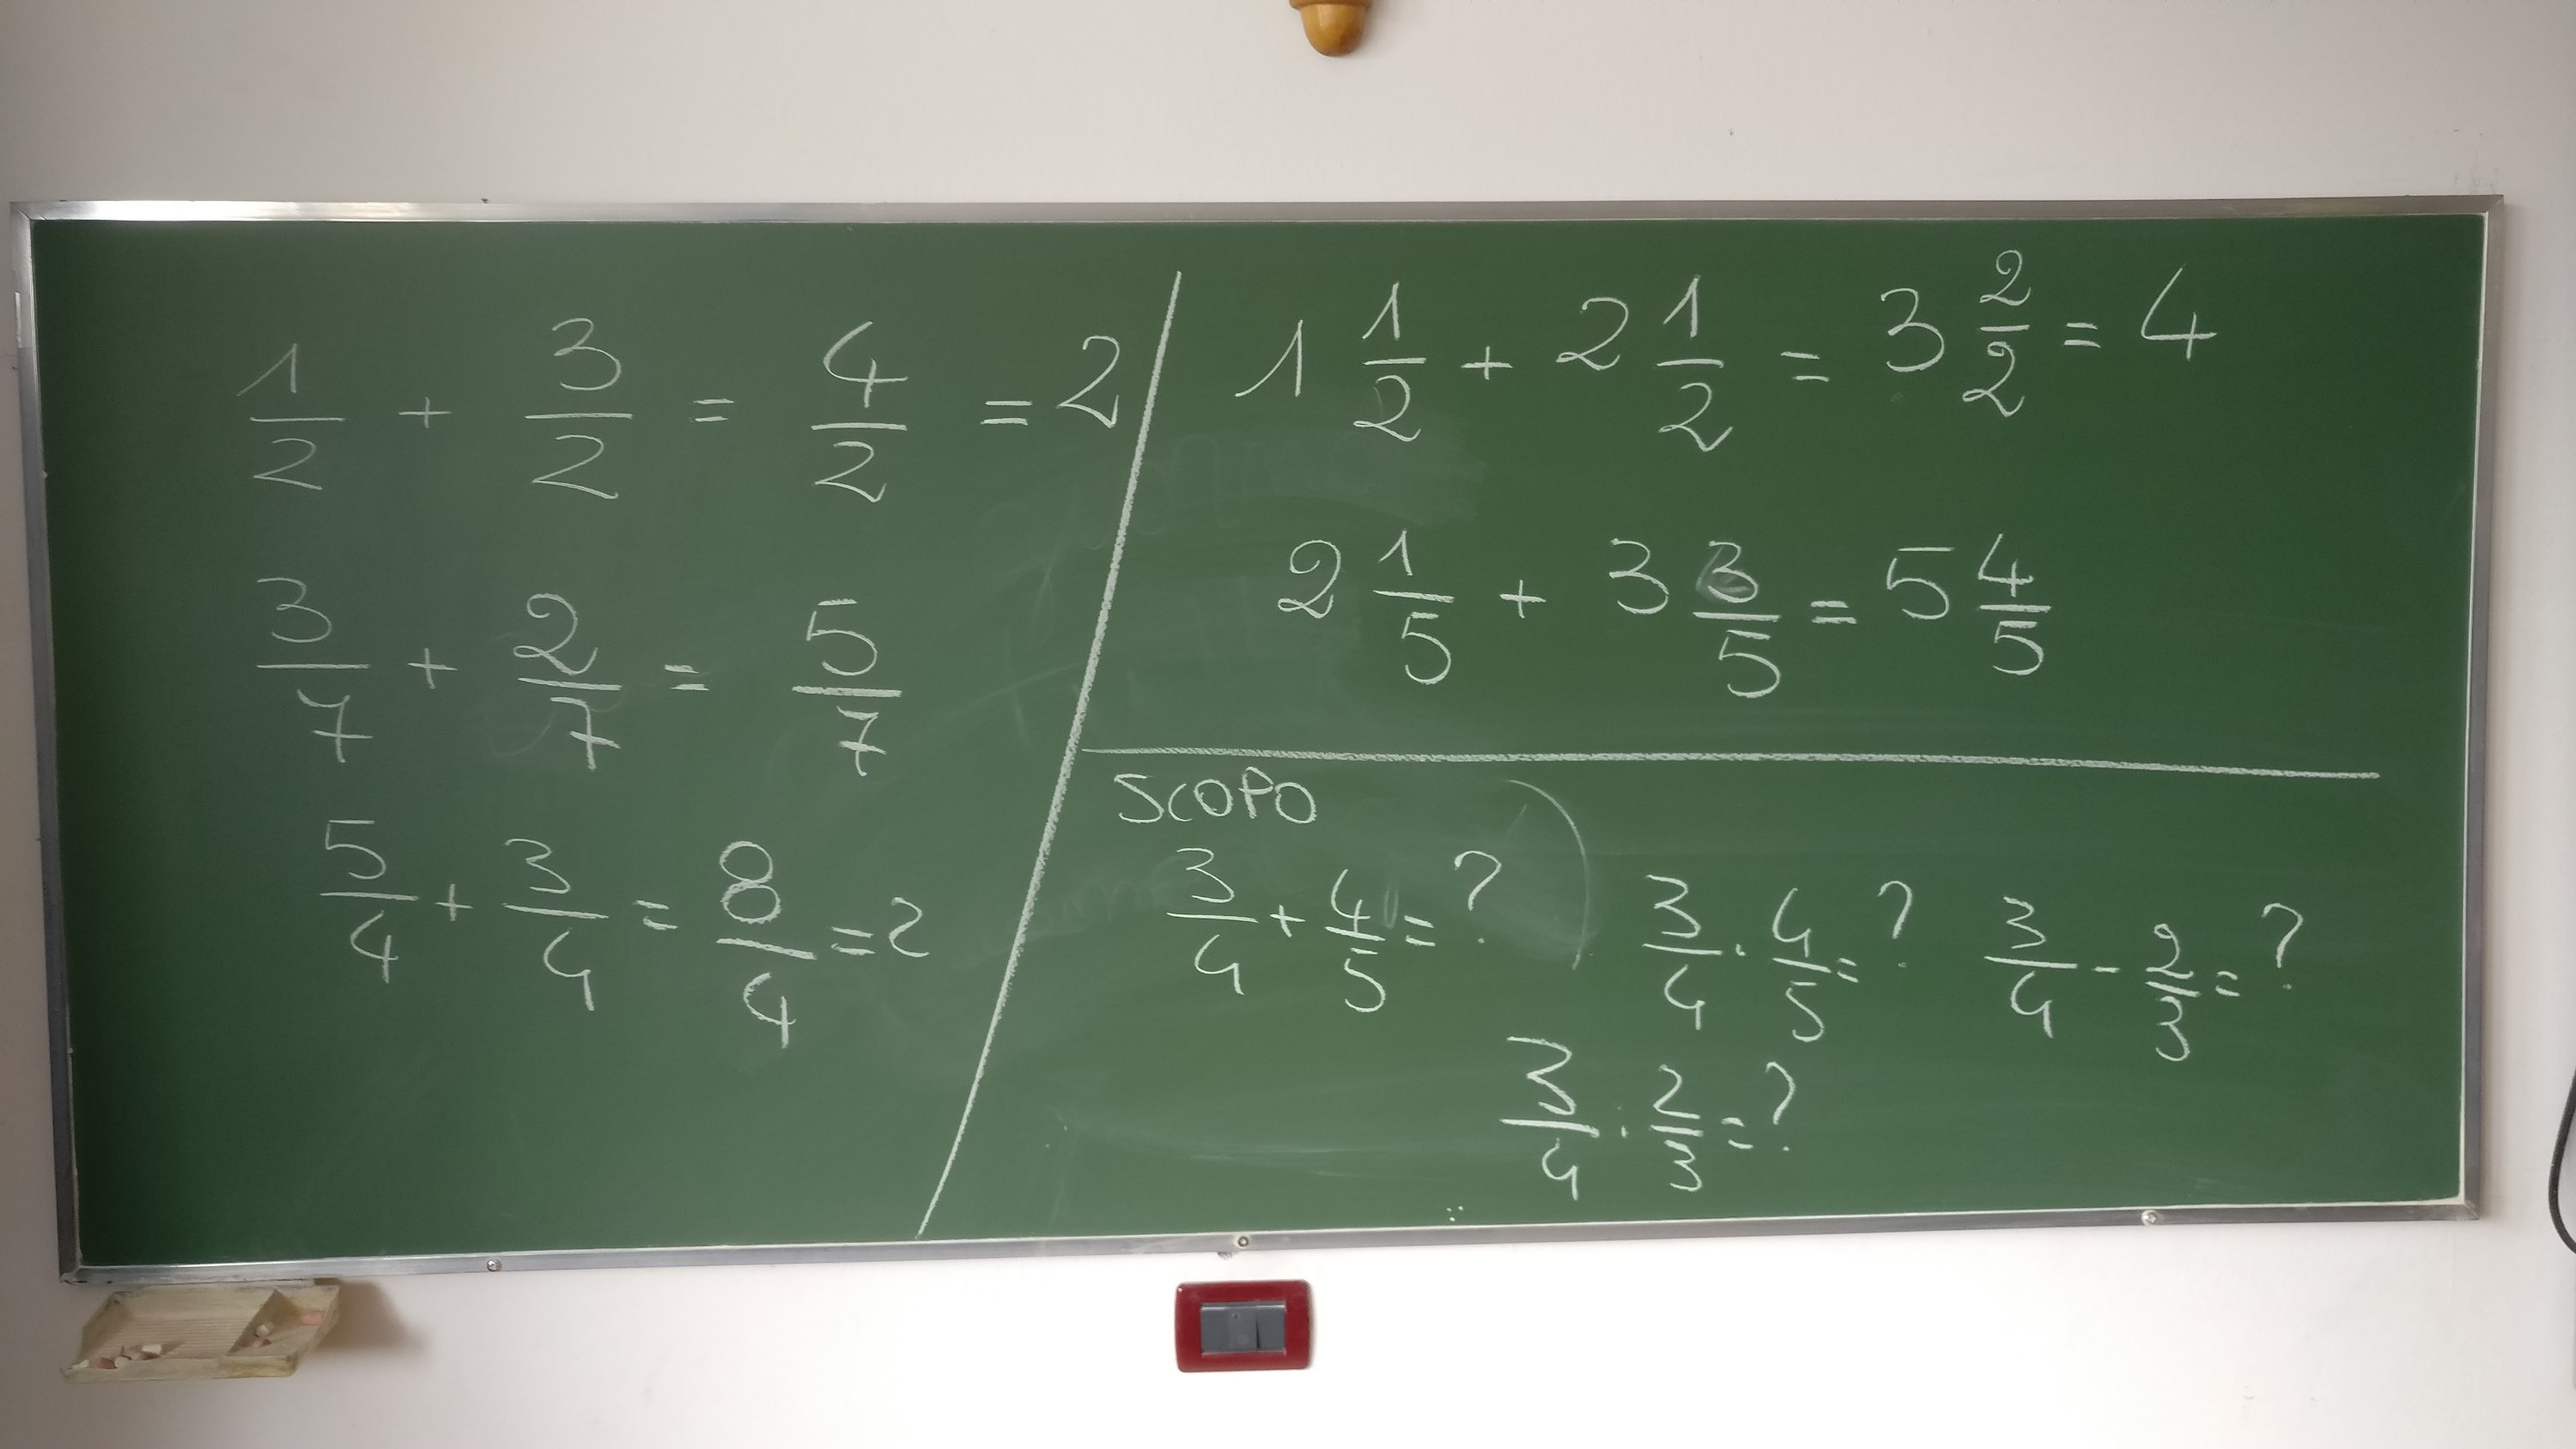 1/2 + 3/2 = 4/2 = 2
3/7 + 2/7 = 5/7
5/4 + 3/4 = 8/4 = 2
1 1/2 + 2 1/2 = 3 2/2 = 4
2 1/5 + 3 3/5 = 5 4/5
SCOPO
3/4 + 4/5 = ? 3/4 · 4/5 = ? 3/4 - 2/3 = ?
3/4 : 2/3 = ?